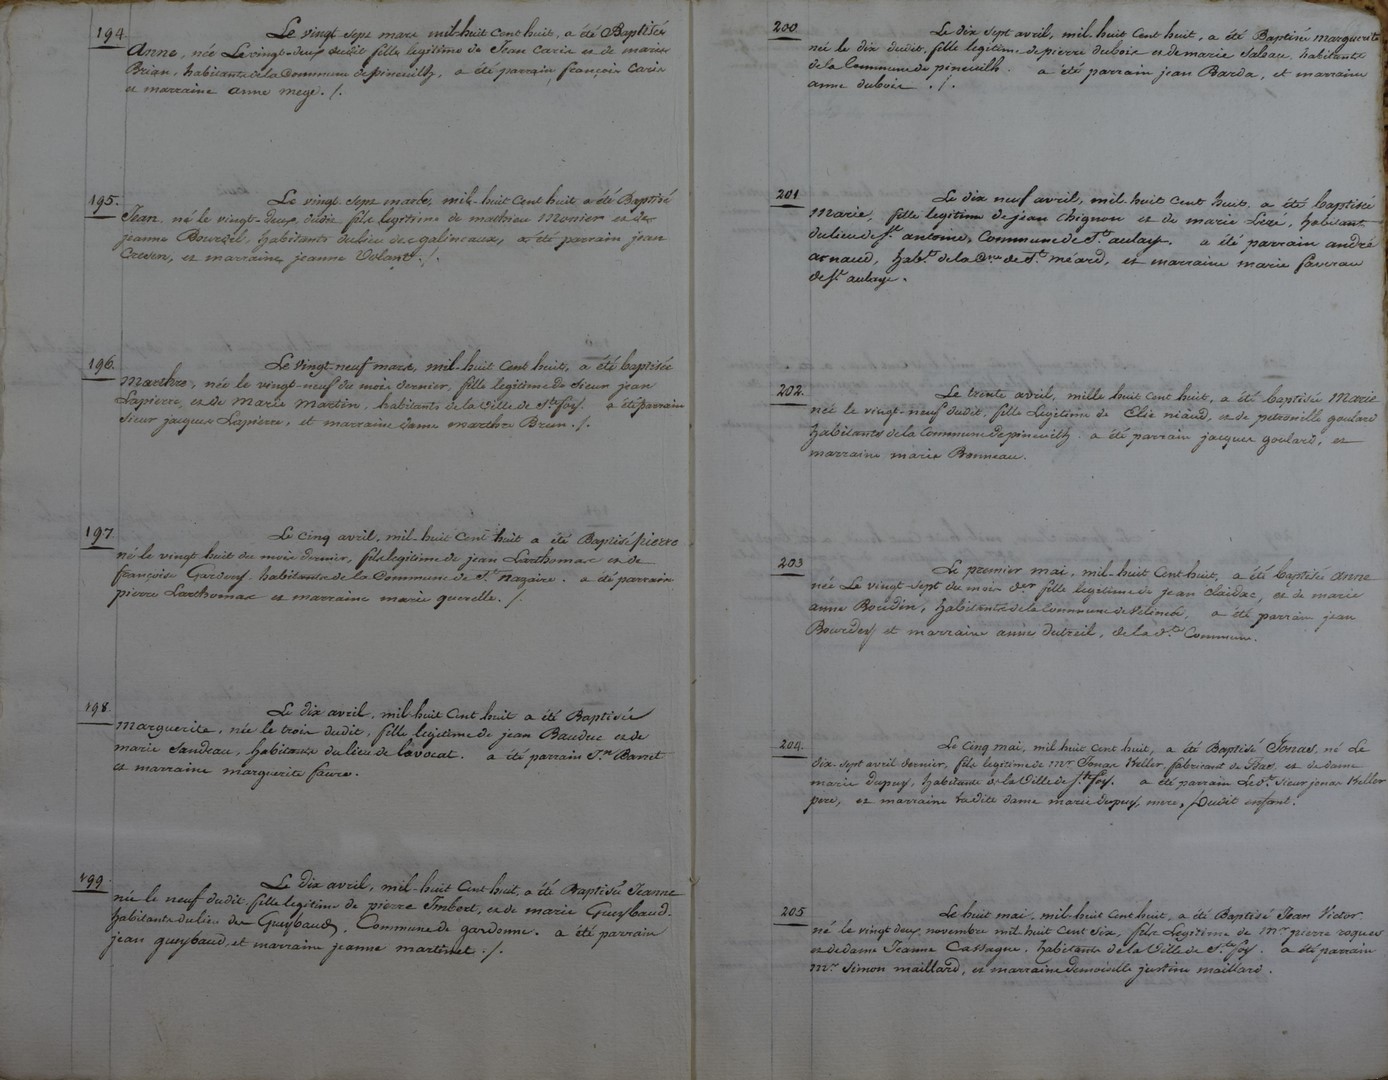 194. Le vingt sept mars mil-huit Cent huit, a été Baptisée
anne, née Le vingt-deux dudit fille legitime de Jean Carie et de marie
Brian, habitants de la Commune de pineuilh, a été parrain françois Carie
et marraine anne mege. /.
195. Le vingt sept mars, mil-huit Cent huit, a été Baptisé
Jean, né le vingt-deux dudit fils legitime de mathieu Monier et de
jeanne Bourdil, habitants du lieu des galineaux, a été parrain jean
et marraine jeanne Volant. /.
196. Le vingt-neuf mars, mil-huit Cent huit, a été baptisée
Marthre, née le vingt-neuf du mois dernier, fille legitime de sieur jean
Lapierre, et de Marie Martin, habitants de la Ville de Ste foy. a été parrain
sieur jacques Lapierre, et marraine dame marthre Brun. /.
197. Le Cinq avril, mil-huit Cent huit a été Baptisé pierre
né le vingt huit du mois dernier, fils legitime de jean Larthomas et de
françoise habitants de la Commune de St. nazaire. a été parrain
pierre Larthomas et marraine marie querelle. /.
198. Le dix avril, mil-huit Cent huit a été Baptisée
marguerite, née le trois dudit, fille legitime de jean Bauduc et de
marie Sandeau, habitants du lieu de lavocat. a été parrain Jn Barret
et marraine marguerite faure.
199. Le dix avril, mil-huit Cent huit, a été Baptisée Jeanne
née le neuf dudit fille legitime de pierre Imbert, et de marie Gueybaud,
habitants du lieu de Gueybaud, Commune de gardonne. a été parrain
jean gueybaud et marraine jeanne martinet. /.
200. Le dix sept avril, mil huit Cent huit, a été Baptisée marguerite
née le dix dudit, fille legitime de pierre dubois et de marie Sabau, habitants
de la Commune de pineuilh. a été parrain jean Barda, et marraine
anne dubois. /.
201. Le dix neuf avril, mil-huit Cent huit, a été baptisée
Marie, fille legitime de jean Chignon et de marie Lizé, habitant
du lieu de St. antoine, Commune de St. aulaye. a été parrain andré
arnaud, habt. de la Cne de St. méard, et marraine marie faverau
de St aulaye.
202. Le trente avril, mille huit Cent huit, a été baptisée Marie
née le vingt-neuf dudit, fille Legitime de Elie niaud, et de petronille goulard
habitants de la Commune de pineuilh. a été parrain jacques goulard, et
marraine marie Bonneau.
203. Le premier mai, mil-huit Cent huit, a été baptisée anne
née Le vingt sept du mois der fille legitime de jean Claidac, et de marie
anne Boudin, habitants de la Commune de Velines. a été parrain jean
Bourdey et marraine anne dutreil, de la de. Commune.
204. Le Cinq mai, mil huit Cent huit, a été Baptisé Jonas, né Le
dix-sept avril dernier, fils legitime de Mr. Jonas Keller, fabricant de Bas, et de dame
marie dupuy, habitants de la Ville de Ste foy. a été parrain Le dt. sieur jonas Keller
pere, et marraine la dite dame marie dupuy, mere, dudit enfant.
205. Le huit mai, mil-huit Cent huit, a été Baptisé Jean Victor
né le vingt deux novembre mil huit Cent Six, fils Legitime de Mr pierre roques
et de dame Jeanne Cassagne, habitants de la Ville de Ste foy. a été parrain
Mr. Simon maillard, et marraine demoiselle justine maillard.